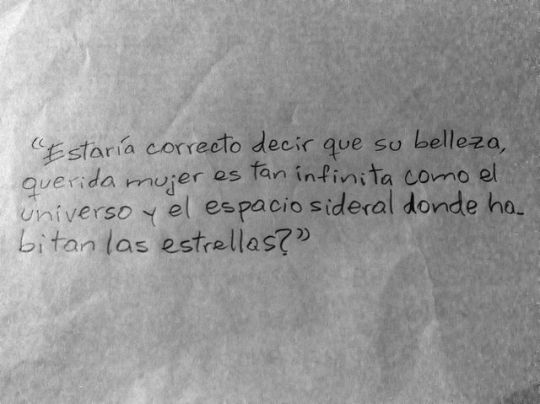 “Estaría correcto decir que su belleza,
querida mujer es tan infinita como el
universo y el espacio sideral donde ha-
bitan las estrellas?”